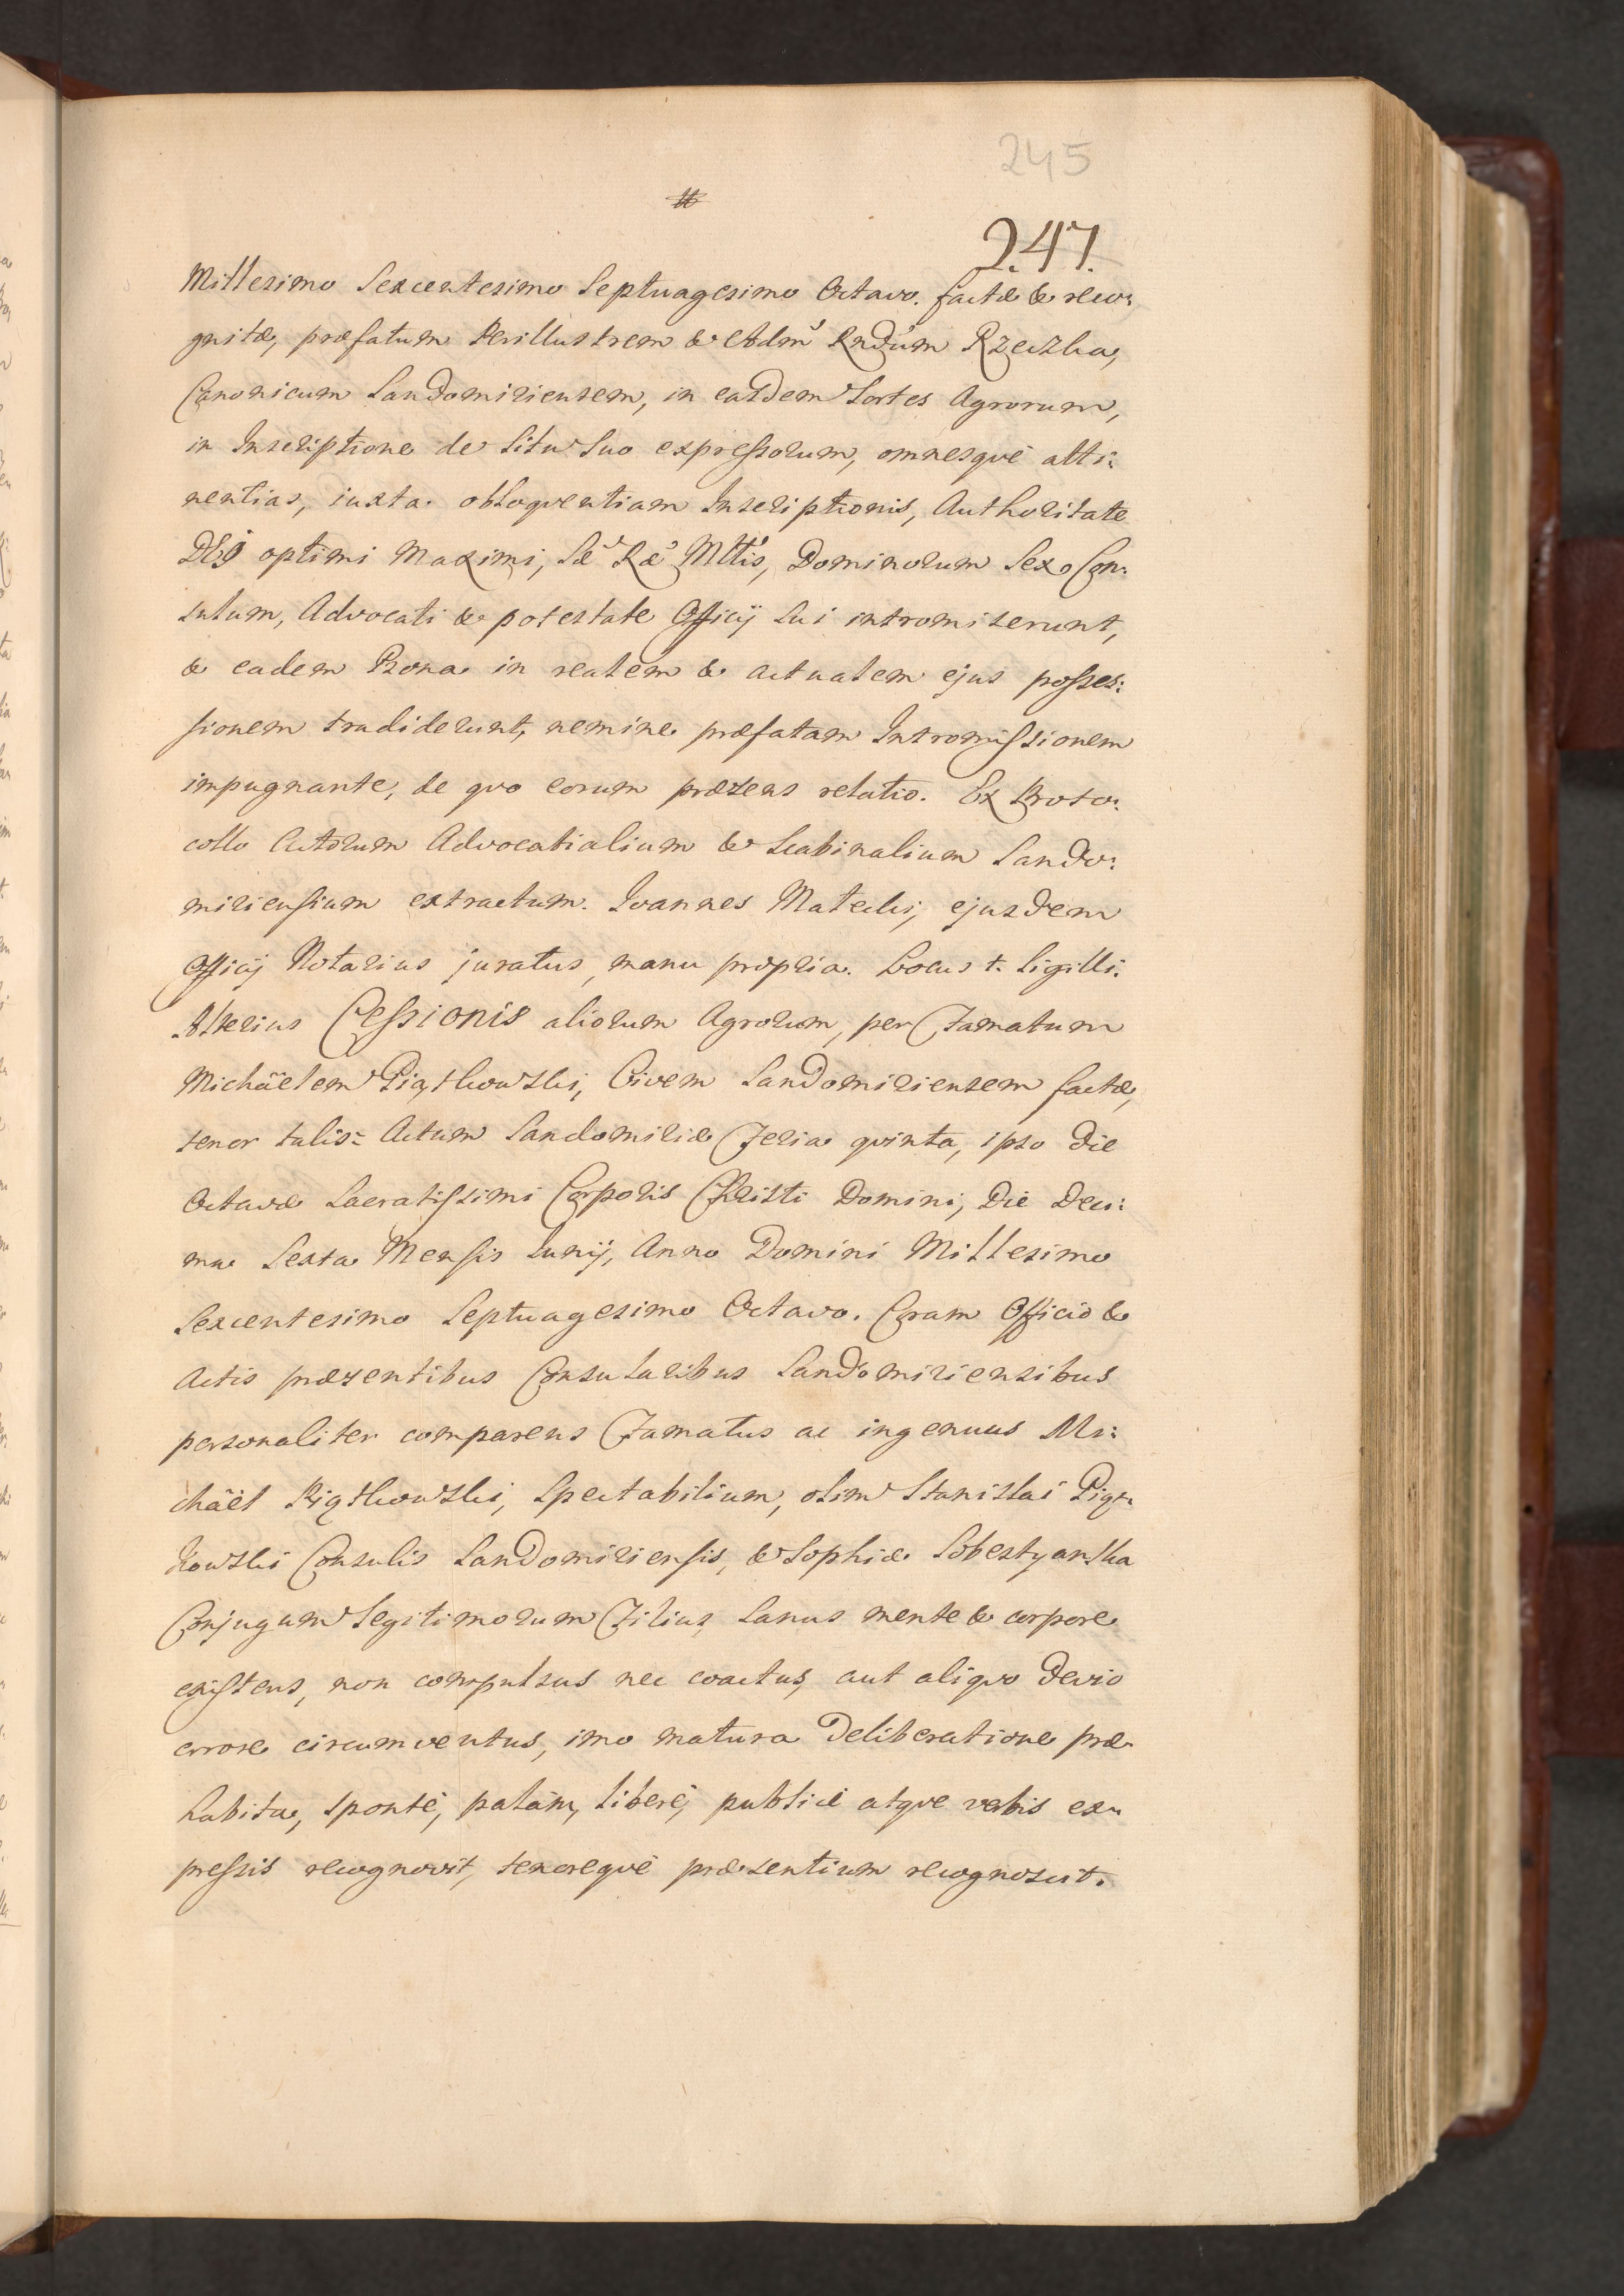 245
#
247.
Millesimo Sexcentesimo Septuagesimo Octavo. factæ & reco:
gnitæ, præfatum Perillustrem & Adm̃ Rndũm Rzeczka,
Canonicum Sandomiriensem, in easdem Sortes Agrorum,
in Inscriptione de Situ Suo expressorum, omnesqvè atti:
nentias, iuxta obloqventiam Inscriptionis, Authoritate
DEI optimi Maximi, Sæ Ræ Mttis, Dominorum Sex Con:
sulum, Advocati & potestate Officij Sui intromiserunt,
& eadem Bona in realem & actualem ejus posses:
sionem tradiderunt, nemine præfatam Intromissionem
impugnante, de qvo eorum præsens relatio. Ex Proto:
collo Actorum Advocatialium & Scabinalium Sando:
miriensium extractum. Ioannes Matecki, ejusdem
Officij Notarius juratus, manu propria. Locus +. Sigilli.
Alterius Cessionis aliorum Agrorum, per Famatum
Michäelem Piątkowski, Civem Sandomiriensem factæ,
tenor talis: Actum Sandomiriæ Feria qvinta, ipso Die
Octavæ Sacratissimi Corporis Christi Domini, Die Deci:
ma Sexta Mensis Iunij, Anno Domini Millesimo
Sexcentesimo Septuagesimo Octavo. Coram Officio &
Actis præsentibus Consularibus Sandomiriensibus
personaliter comparens Famatus ac ingenuus Mi:
chäel Piątkowski, Spectabilium, olim Stanislai Piąt:
kowski Consulis Sandomiriensis, & Sophiæ Sobestyanska
Conjugum Legitimorum Filius, Sanus mente & corpore
existens, non compulsus nec coactus, aut aliqvo devio
errore circumventus, imo matura Deliberatione præ:
habita, spontè, palàm, liberè, publicè atqve verbis ex:
pressis recognovit, tenoreqvè præsentium recognoscit.